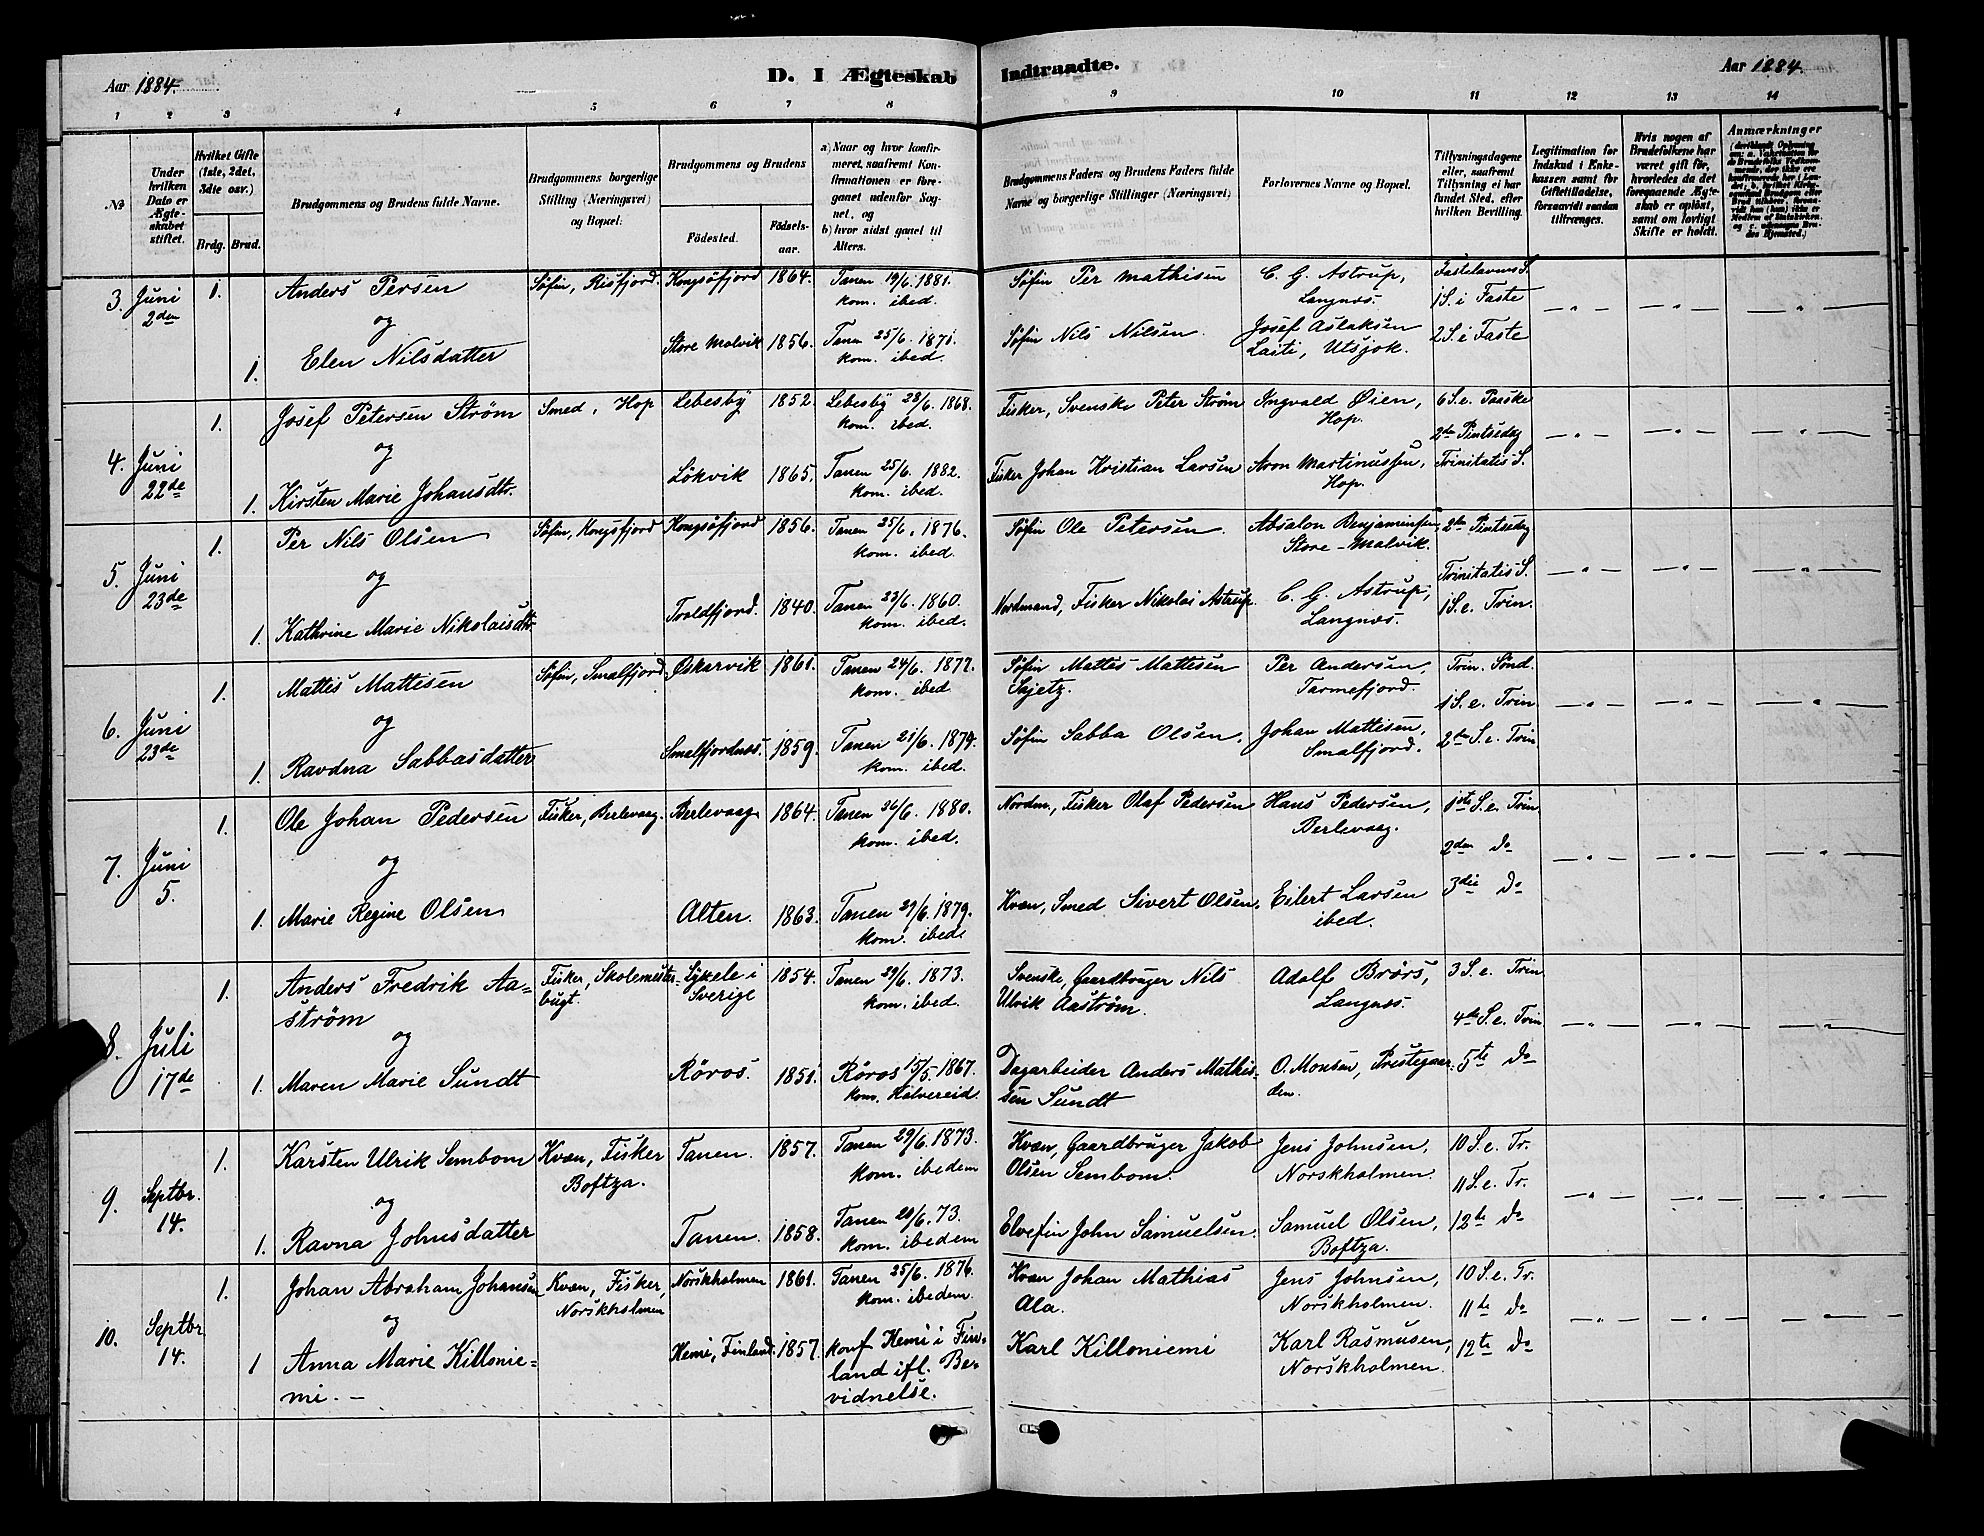 Aar 1884.
D. I Ægteskab Indtraadte.
Aar 1884.
1 2 3 4 5 6 7 8 9 10 11 12 13 14
No
Under hvilken Dato er Ægteskabet stiftet.
Hvilket Gifte (1ste, 2det, 3die osv.)
Brdg. Brud.
Brudgommens og Brudens fulde Navne.
Brudgommens borgerlige Stilling (Næringsvei) og Bopæl.
Brudgommens og Brudens
Fødested.
Fødselsaar.
a) Naar og hvor konfirmeret, saafremt Konfirmationen er foregaaet udenfor Sognet, og
b) hvor sidst gaaet til Alters.
Brudgommens Faders og Brudens Faders fulde Navne og borgerlige Stillinger (Næringsvei)
Forlovernes Navne og Bopæl.
Tillysningsdagene eller, saafremt Tillysning ei har fundet Sted, efter hvilken Bevilling.
Legitimation for Indskud i Enkekassen samt for Giftetilladelse, forsaavidt saadan tiltrænges.
Hvis nogen af Brudefolkene har været gift før, hvorledes da det foregaaende Ægteskab er opløst, samt om lovligt Skifte er holdt.
Anmærkninger
3. Juni 2den
1. Anders Persen
Søfin, Risfjord. Kongsøfjord 1864. Tanen 19/6. 1881. kom. ibed.
Søfin Per Mathisen
C. G. Astrup, Langnæs.
Fastelavns S.
1 S. i Faste
og
1. Elen Nilsdatter
Store Molvik 1856. Tanen 25/6. 1871. kom. ibed.
Søfin Nils Nilsen
Josef Aslaksen Laiti, Utsjok.
2 S. i Faste
4. Juni 22de
1. Josef Petersen Strøm
Smed, Hop Lebesby 1852. Lebesby 28/6. 1868. kom. ibed.
Fisker, Svenske Peter Strøm
Ingvald Øien, Hop.
6 S. e. Paaske
2de Pintsedag
og
1. Kirsten Marie Johansdtr.
Løkvik 1865. Tanen 25/6. 1882. kom. ibed.
Fisker Johan Kristian Larsen
Aron Martinussen, Hop.
Trinitatis S.
5. Juni 23de
1. Per Nils Olsen
Søfin, Kongsfjord Kongsøfjord 1856. Tanen 25/6. 1876. kom. ibed.
Søfin Ole Petersen.
Absalon Benjaminsen, Store-Malvik.
2de Pintsedag
Trinitatis S.
og
1. Kathrine Marie Nikolaisdtr.
Troldfjord. 1840. Tanen 23/6. 1860. kom. ibed.
Nordmand, Fisker Nikolai Astrup.
C. G. Astrup, Langnæs.
1 S. e. Trin.
6. Juni 23de
1. Mattis Mattisen
Søfin, Smalfjord. Oskarvik 1861. Tanen 24/6. 1877. kom. ibed
Søfin Mattis Mattisen Sajetz.
Per Andersen, Tarmefjord.
Trin. Sønd.
1 S. e. Trin
og
1. Ravdna Sabbasdatter
Smalfjordnæs. 1859. Tanen 21/6. 1879. kom. ibed.
Søfin Sabba Olsen.
Johan Mattisen, Smalfjord.
2de S. e. Trin
7. Juni 5.
1. Ole Johan Pedersen
Fisker, Berlevaag. Berlevaag 1864. Tanen 26/6. 1880. kom. ibed.
Nordm., Fisker Olaf Pedersen
Hans Pedersen, Berlevaag.
1ste S. e. Trin
2den do
og
1. Marie Regine Olsen
Alten. 1863. Tanen 29/6. 1879. kom. ibed.
Kvæn, Smed Sivert Olsen.
Eilert Larsen ibed.
3die do
8. Juli 17de
1. Anders Fredrik Aaström
Fisker, Skolemesterbugt. Lyksele i Sverige 1854. Tanen 29/6. 1873. kom. ibed.
Svenske, Gaardbruger Nils Ulrik Aaström.
Adolf Brörs, Langnæs.
3 S. e. Trin
4de S. e. Trin
og
1. Maren Marie Sundt
Röros. 1851. Röros 15/5. 1867. kom. Kalvereid.
Dagarbeider Anders Mathissen Sundt
O. Monsen, Prestegaarden.
5te do
9. Septbr. 14.
1. Karsten Ulrik Sembom
Kvæn, Fisker Boftza. Tanen. 1857. Tanen 29/6. 1873. kom. ibedem
Kvæn, Gaardbruger Jakob Olsen Sembom.
Jens Johnsen, Norskholmen.
10 S. e. Tr.
11 S. e. Tr.
og
1. Ravna Johnsdatter
Tanen. 1858. Tanen 29/6. 73. kom. ibedem
Elvefin John Samuelsen.
Samuel Olsen, Boftza.
12te do
10. Septbr 14.
1. Johan Abraham Johansen
Kvæn, Fisker, Norskholmen Norskholmen 1861. Tanen 25/6. 1876. kom. ibedem.
Kvæn Johan Mathias Ala.
Jens Johnsen, Norskholmen.
10 S. e. Tr.
11te do
og
1 Anna Marie Killoniemi. —
Kemi, Finland. 1857. konf Kemi i Finland ifl. Bevidnelse.
Karl Killoniemi
Karl Rasmusen, Norskholmen.
12te do